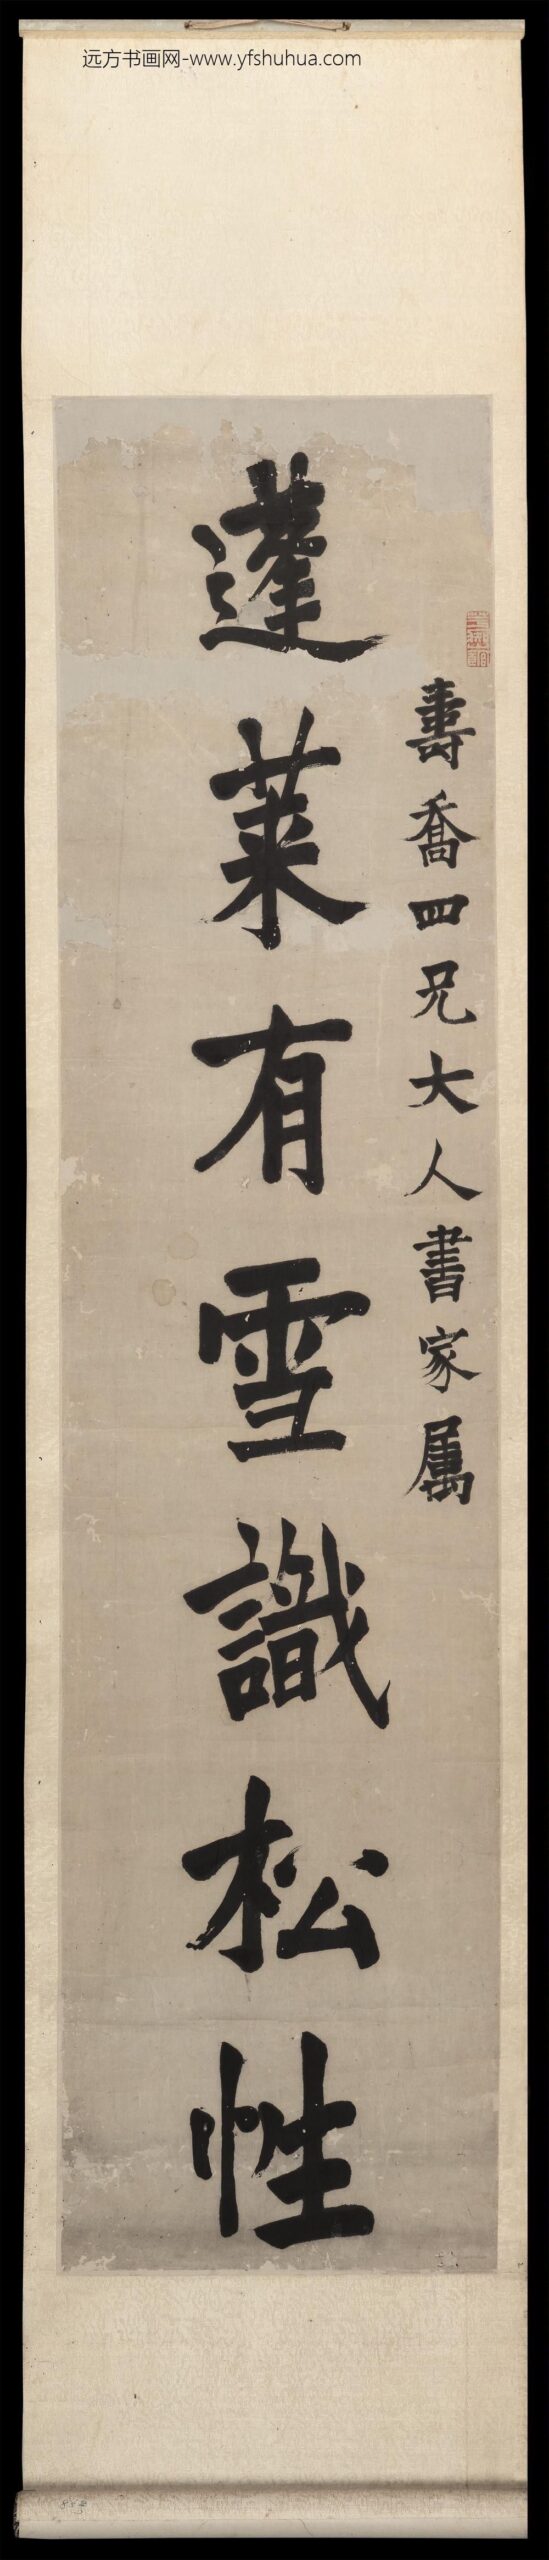 远方书画网-www.yfshuhua.com
壽喬四兄大人書家属
蓬萊有雪識松性